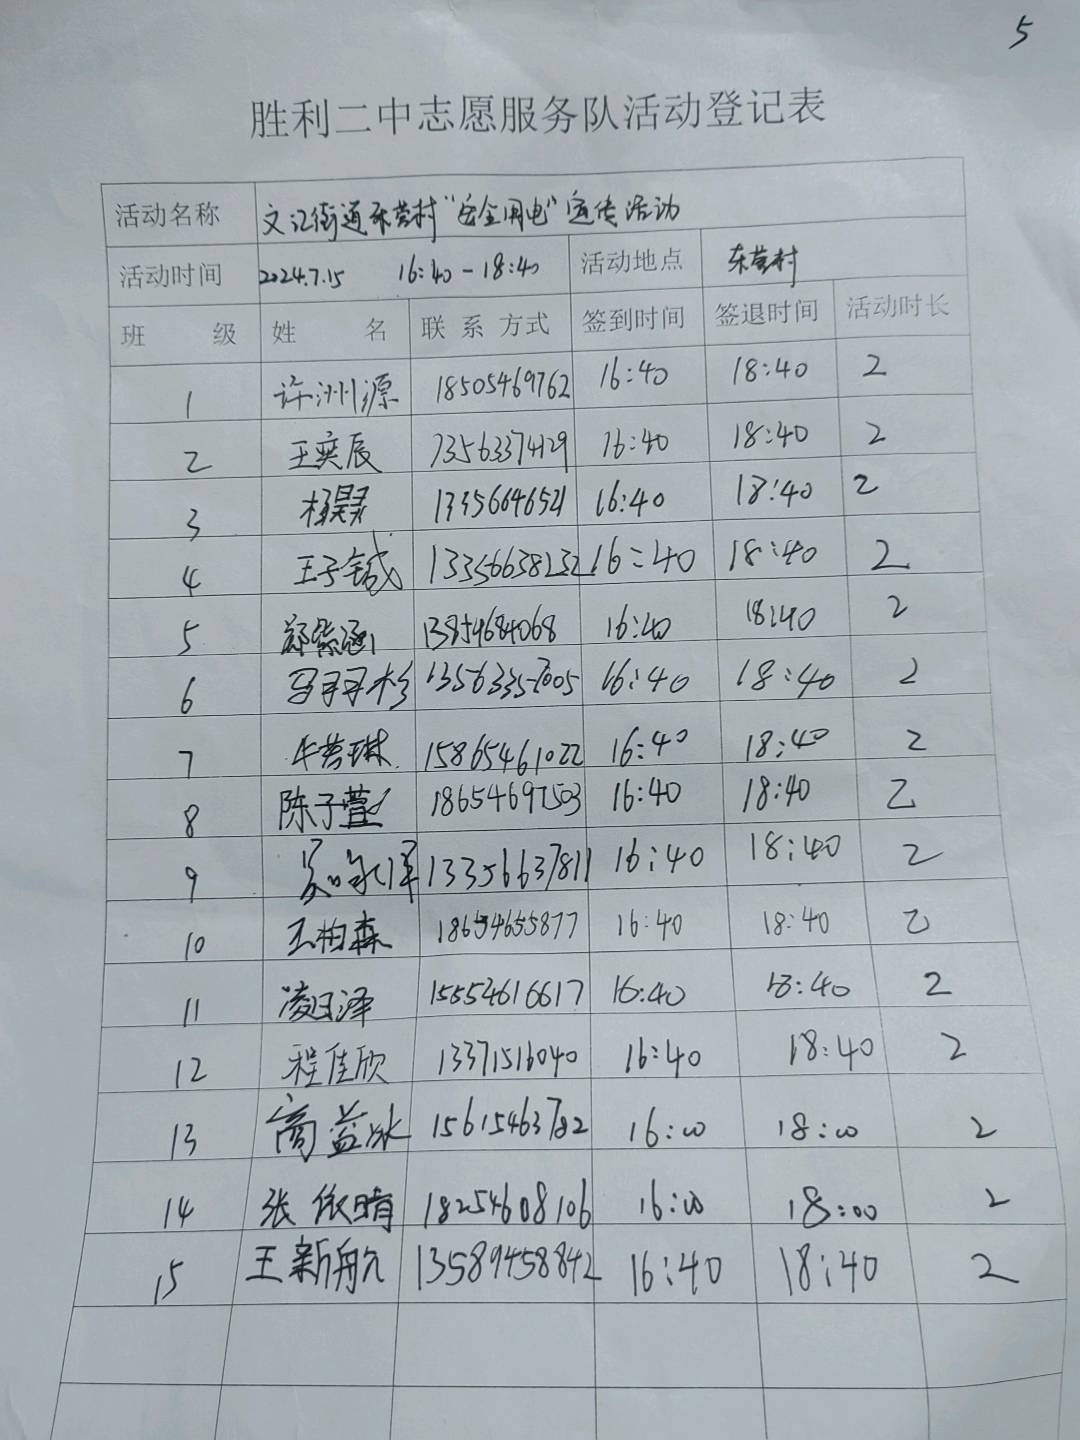 5
胜利二中志愿服务队活动登记表
活动名称 文汇街道东营村“安全用电”宣传活动
活动时间 2024.7.15 16:40-18:40 活动地点 东营村
班 级 姓 名 联 系 方式 签到时间 签退时间 活动时长
1 许洲源 18505469762 16:40 18:40 2
2 王奕辰 13563374129 16:40 18:40 2
3 杨昊 13356646521 16:40 18:40 2
4 王子铖 13356638232 16:40 18:40 2
5 郑紫涵 13854684068 16:40 18:40 2
6 马寻杉 13563357005 16:40 18:40 2
7 牛营琳 15865461022 16:40 18:40 2
8 陈子萱 18654697503 16:40 18:40 2
9 13356637811 16:40 18:40 2
10 王柏森 18654655877 16:40 18:40 2
11 凌日泽 15554616617 16:40 18:40 2
12 程佳欣 13371516040 16:40 18:40 2
13 商益冰 15615463782 16:00 18:00 2
14 张依晴 18254608106 16:00 18:00 2
15 王新航 13589458842 16:40 18:40 2